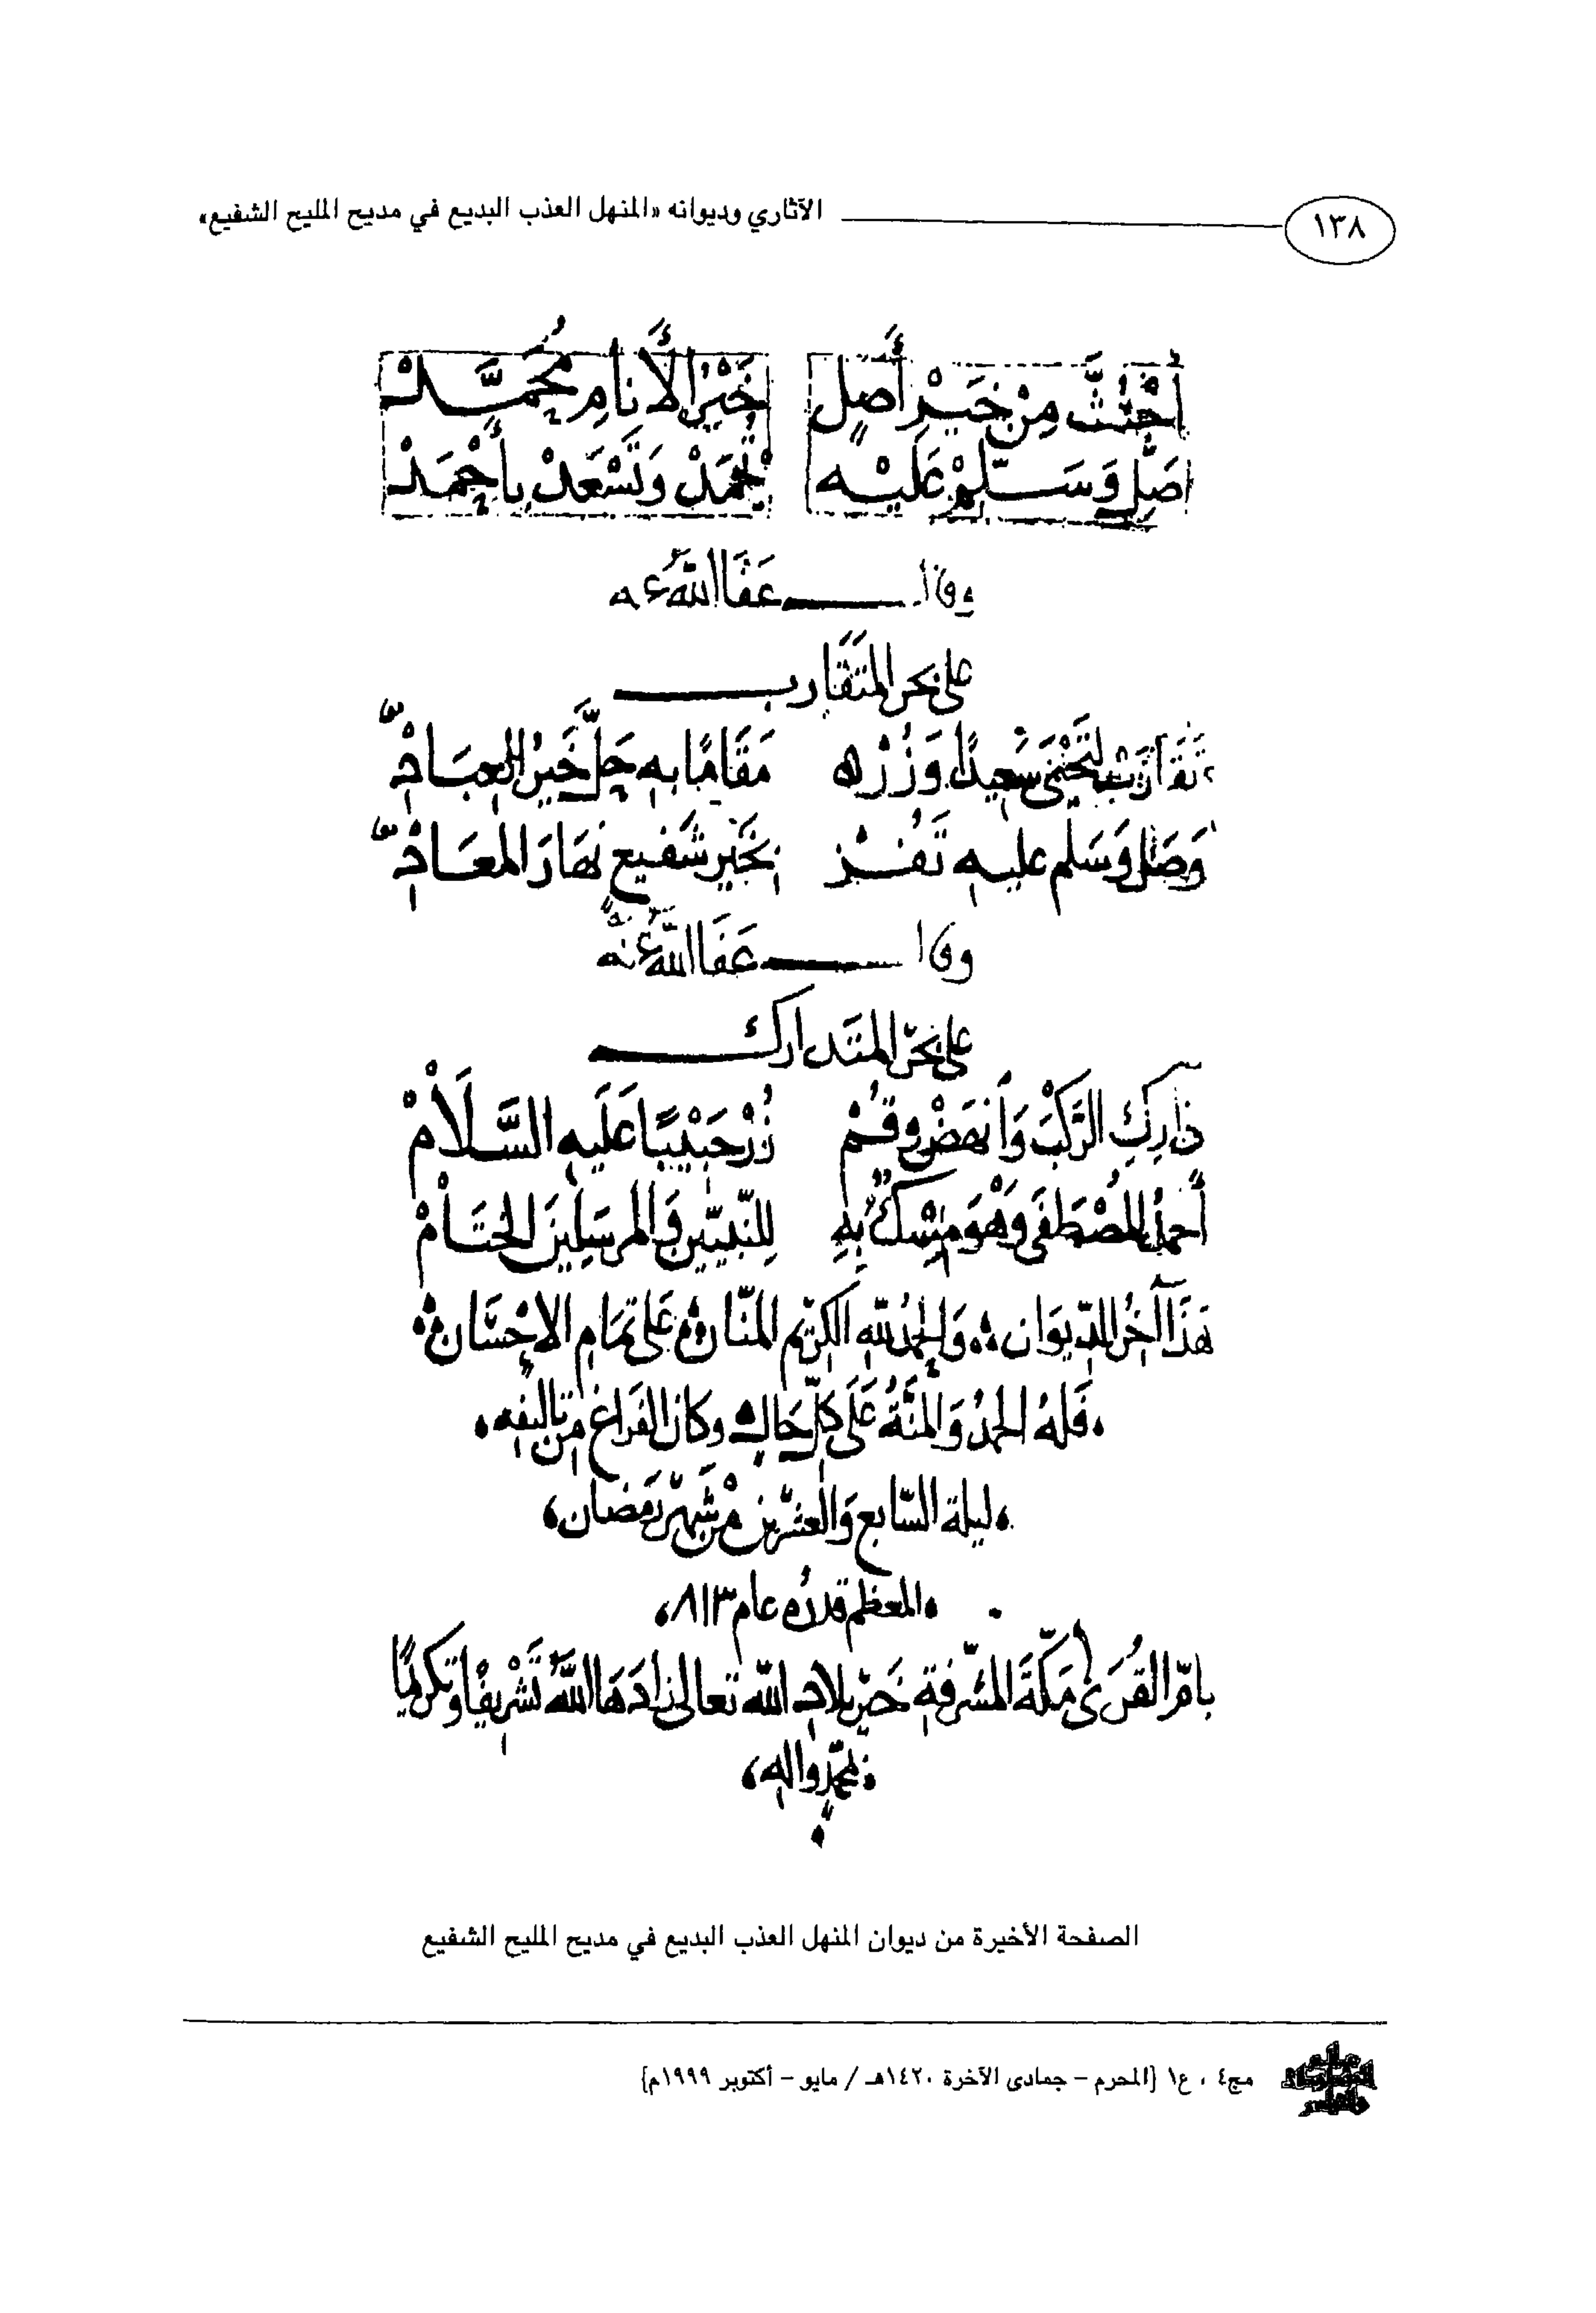 ١٣٨ الآثاري وديوانه «المنهل العذب البديع في مديح المليح الشفيع»
اُجْتُثَّ مِنْ خَيْرِ أَصْلٍ خَيْرُ الأَنَامِ مُحَمَّدْ
صَلِّ وَسَلِّمْ عَلَيْهِ تُحْمَدْ وَتَسْعَدْ بِأَحْمَدْ
وقال عَفَا اللهُ عنه
على بحر المتَقَارب
تَقَارَبْ سَعِيدًا وَزُرْه مَقَامًا بِهِ حَلَّ خَيْرُ العِبَادْ
وَصَلِّ وَسَلِّم عليه تَفُزْ بِخَيْرِ شَفيعٍ نَهَارَ المعَادْ
وقال عَفَا اللهُ عنْهُ
على بحر المتَدارك
دَارِكِ الرَّكْبَ وَانْهَضْ وقُمْ زُرْ حَبِيْبًا عَلَيهِ السَّلاَمْ
أَحمدُ المُصْطَفَى وَهْوَ مِسْكٌ بِهِ لِلنَّبِيّيْنَ وَالمرسَلِينَ الخِتَامْ
هَذَا آخِرُ الدِّيوَان وَالحمدُ للهِ الكرِيْمِ المَنَّانْ عَلى تَمَامِ الإِحْسَانْ
فَلَهُ الحمدُ وَالمنَّةُ عَلَى كلِّ حَالٍ وكانَ الفَرَاغ مِن تاليفِه
ليلة السَّابع وَالعِشْرِينَ مْن شَهْرِ رَمَضان
المعظم قدرُه عام ٨١٣
بامِّ القُرَى مَكَّةَ المشرّفةِ خَيْرِ بلادِ الله تعالى زادَهَا اللهُ تَشْرِيفًا وتكريمًا
بمحمّدٍ والهِ
الصفحة الأخيرة من ديوان المنهل العذب البديع في مديح المليح الشفيع
مج٤ ، ع١ {المحرم – جمادى الآخرة ١٤٢٠هـ / مايو – أكتوبر ١٩٩٩م}